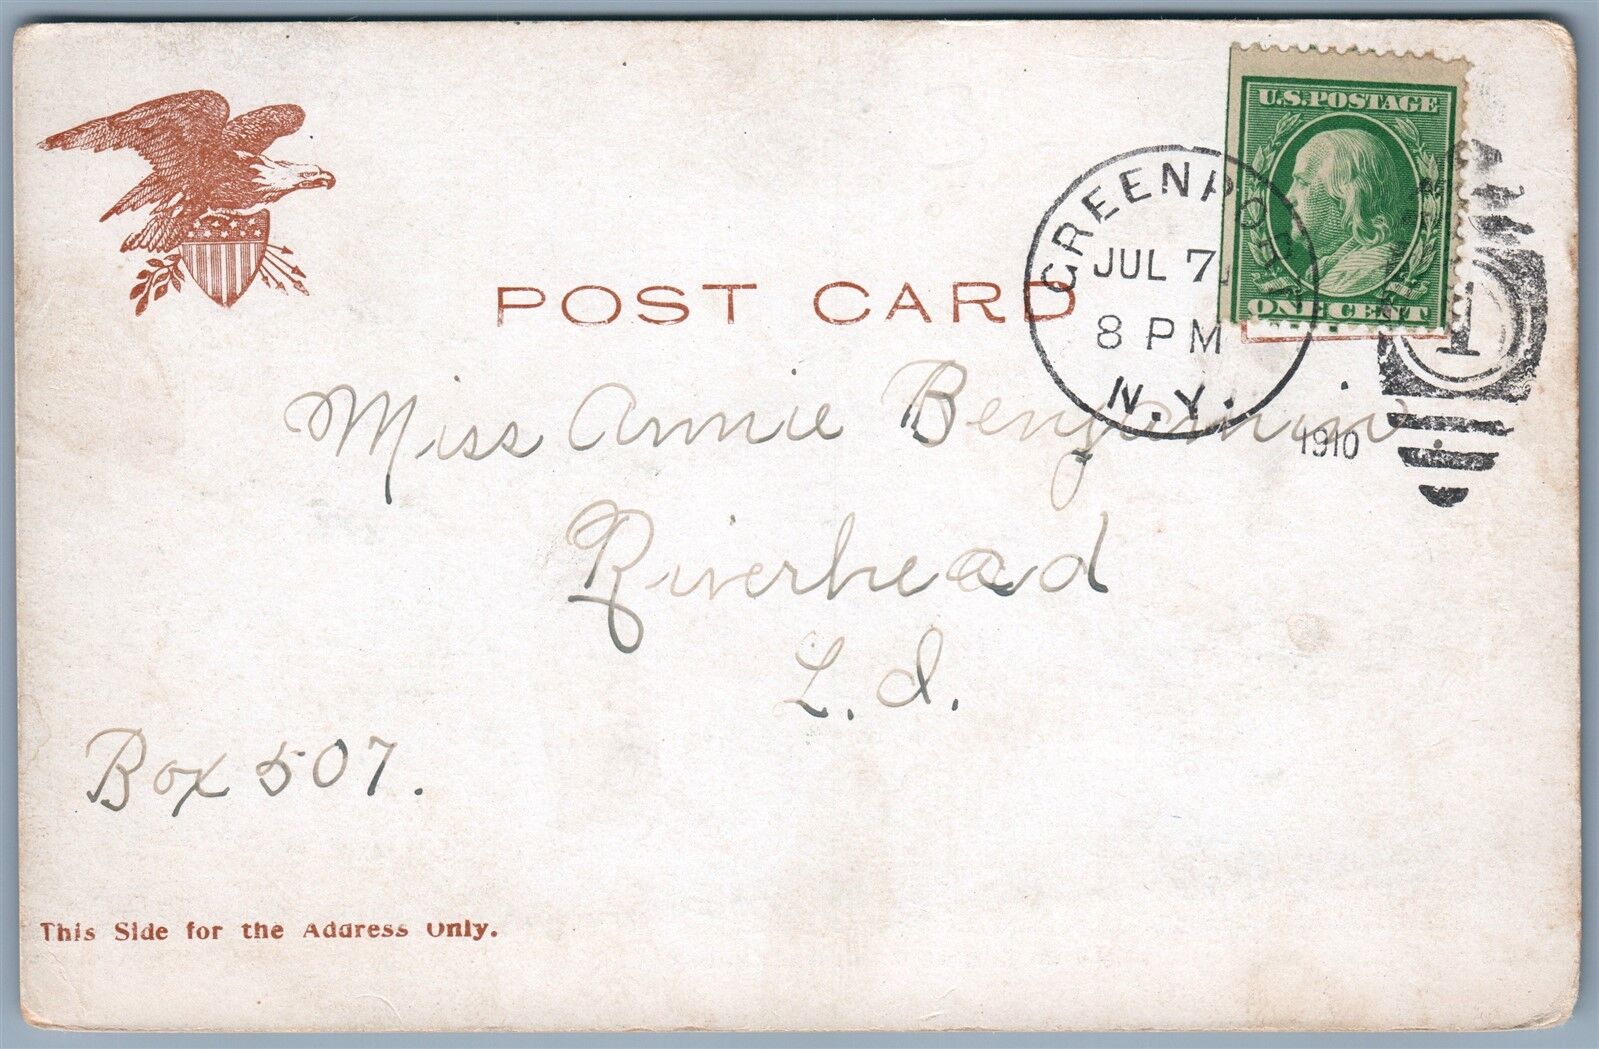 U.S. POSTAGE
ONE CENT
GREENPORT
JUL 7
8 PM
N.Y.
1910
1
POST CARD
Miss Annie Benjamin
Riverhead
L. I.
Box 507.
This Side for the Address Only.